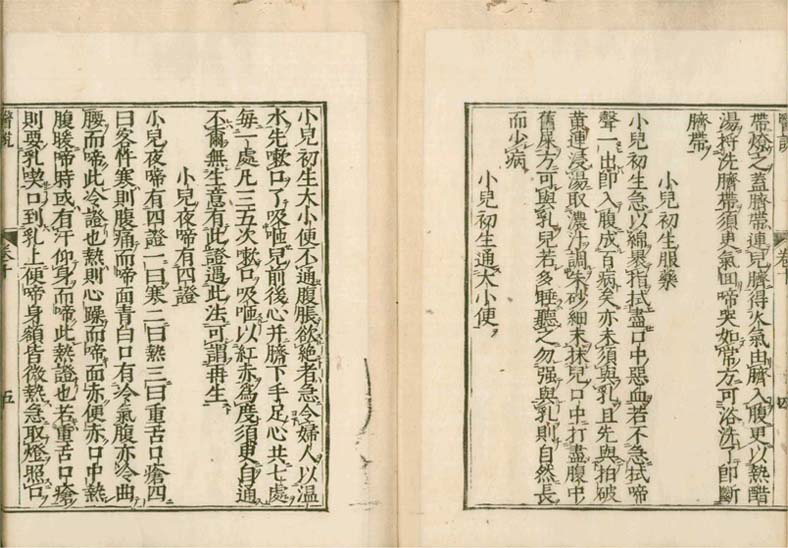 帶燈之蓋臍帶連兒臍得火氣由臍入腹更以熱醋
湯捋洗臍帶須更氣回啼哭如常方可浴洗了即斷
臍帶
小兒初生服藥
小兒初生急以綿裹指拭盡口中惡血若不急拭啼
聲一出即入腹成百病矣亦未須與乳且先與拍破
黃連浸湯取濃汁調朱砂細末抹兒口中打盡腹中
舊屎方可與乳兒若多睡聽之勿强與乳則自然長
而少病
小兒初生通大小便
小兒初生大小便不通腹脹欲絕者急令婦人以溫
水先嗽口了吸咂兒前後心并臍下手足心共七處
每一處凡三五次嗽口吸咂以紅赤爲度須更自通
不爾無生意有此證遇此法可謂再生
小兒夜啼有四證
小兒夜啼有四證一曰寒二曰熱三曰重舌口瘡四
曰客忤寒則腹痛而啼面青白口有冷氣腹亦冷曲
腰而啼此冷證也熱則心躁而啼面赤便赤口中熱
腹暖啼時或有汗仰身而啼此熱證也若重舌口瘡
則要乳喫口到乳上便啼身額皆微熱急取燈照口
醫說
卷十
五